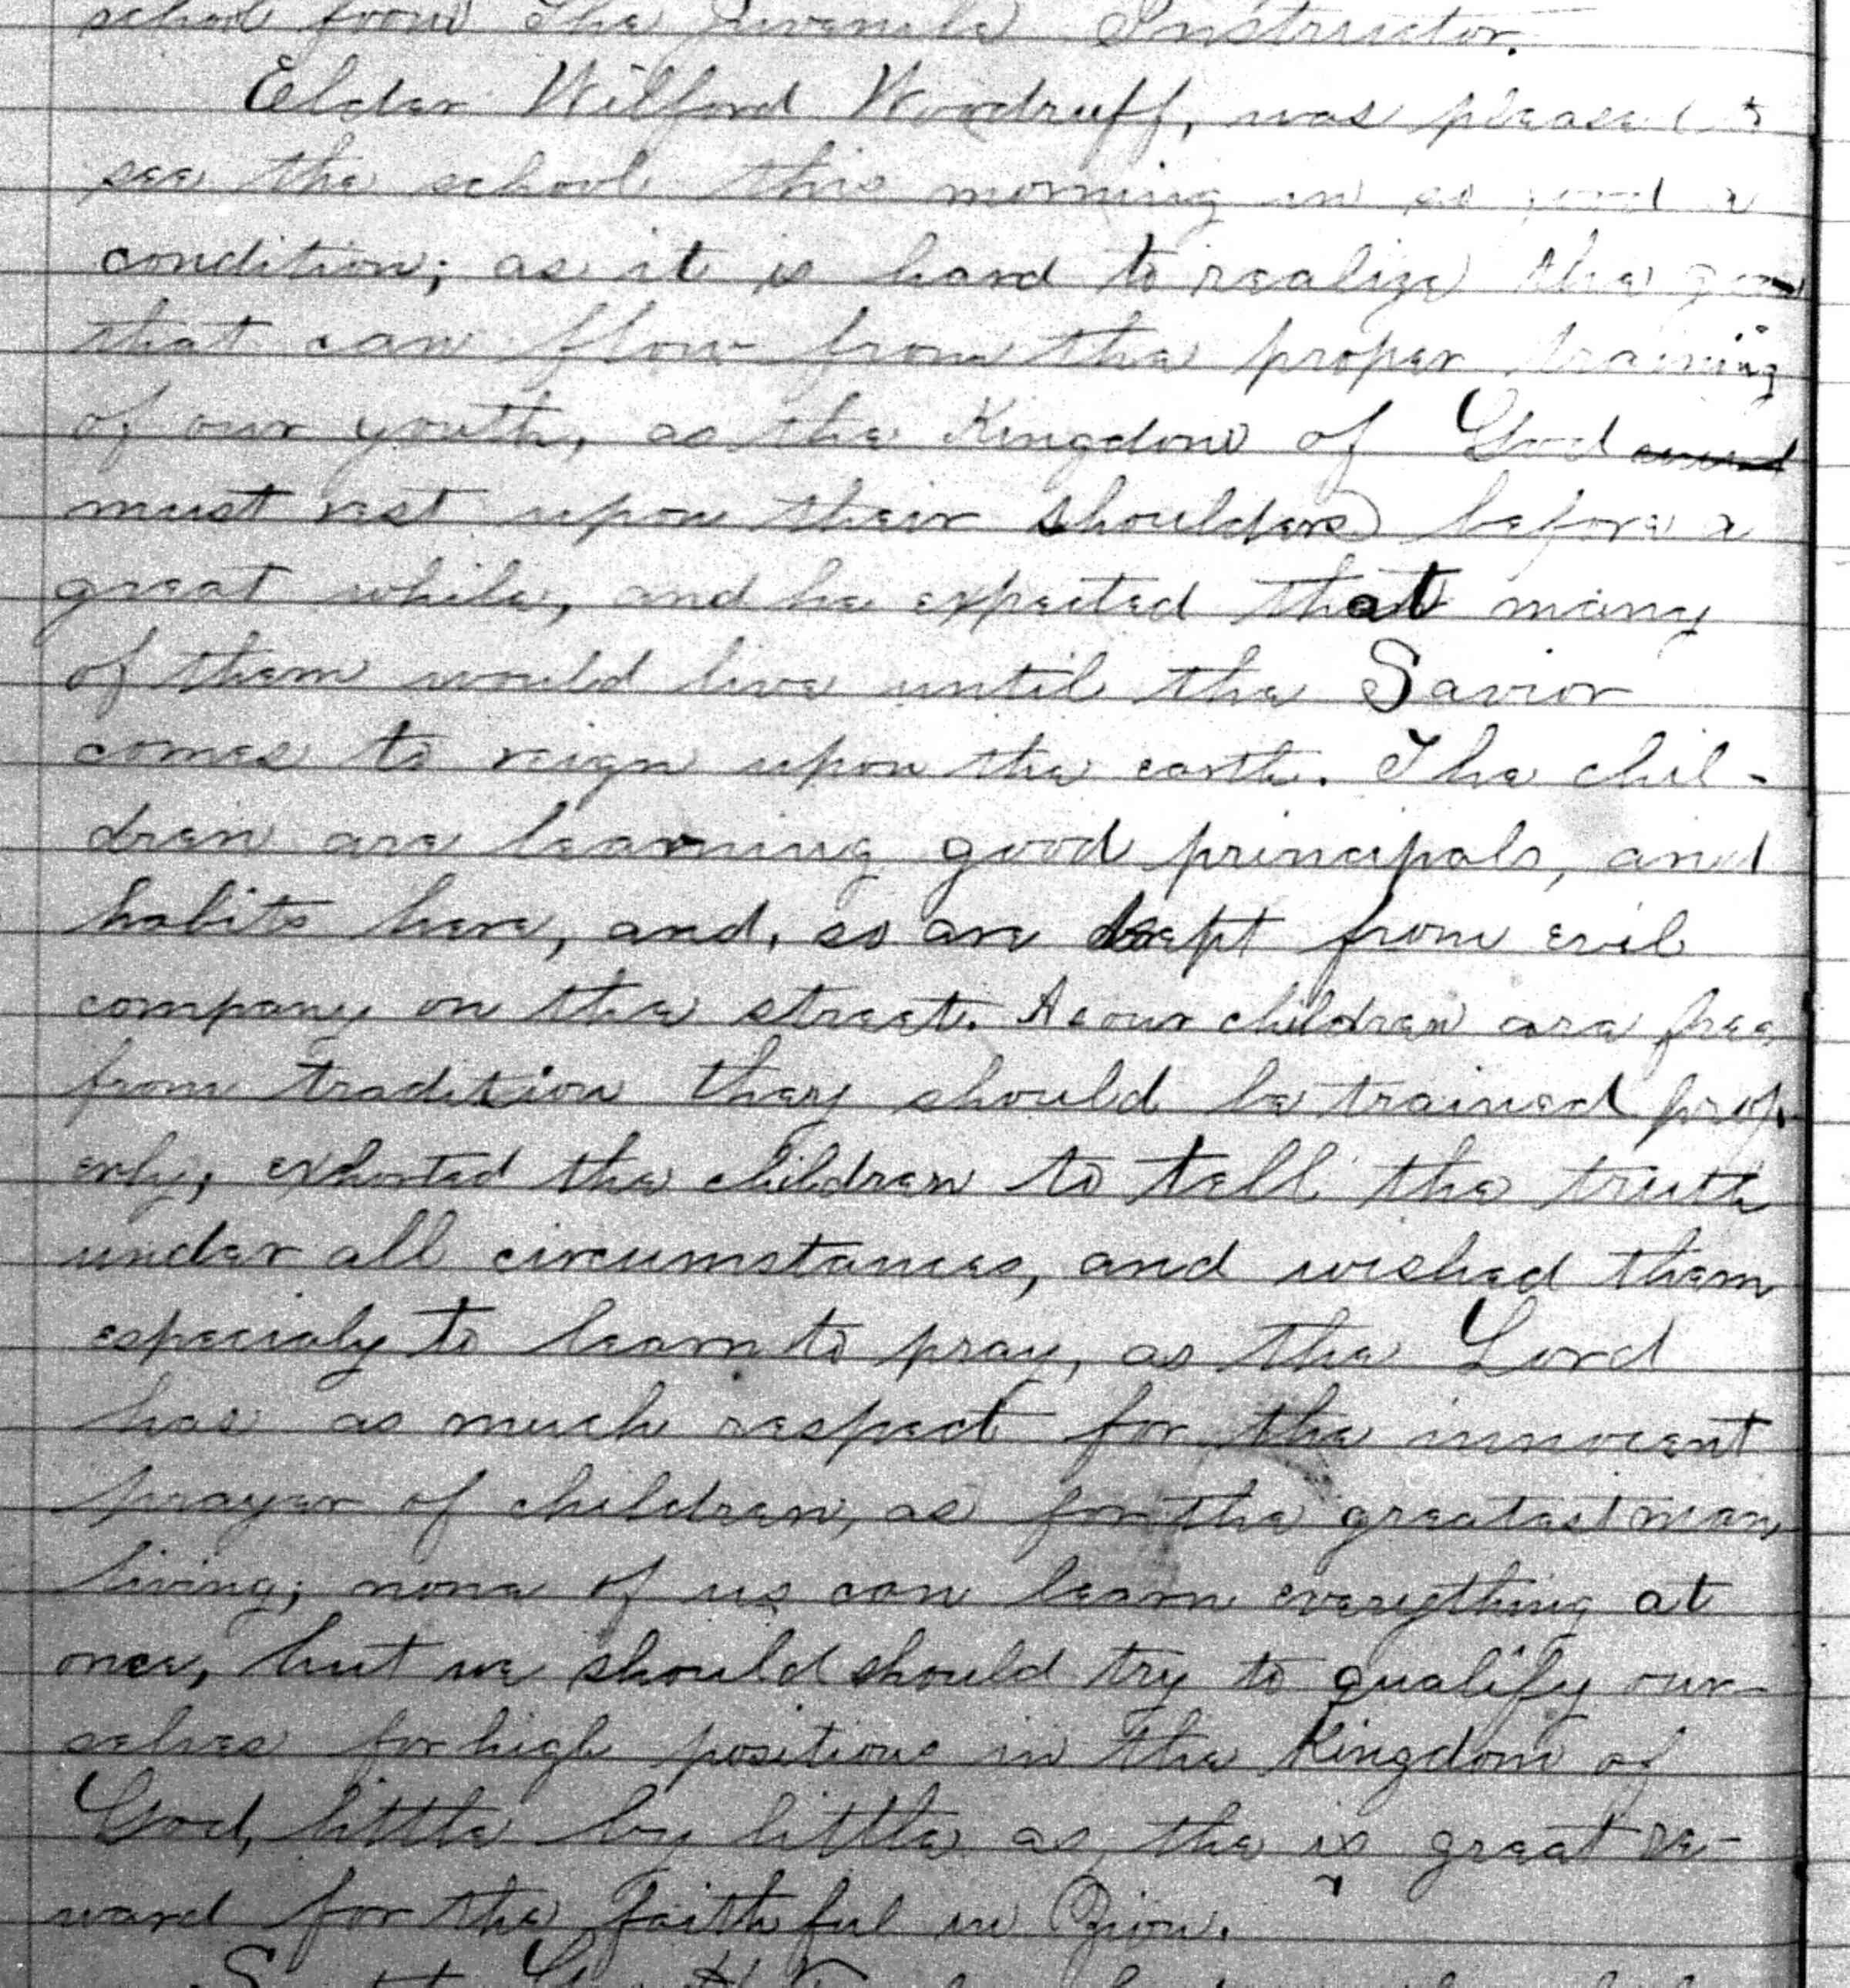 school from The Juvenile Instructor.
Elder Wilford Woodruff, was pleased to
see the school this morning in so good a
condition; as it is hard to realize the good
that can flow from the proper training
of our youth, as the Kingdom of God
must rest upon their shoulders before a
great while, and he expected that many
of them would live until the Savior
comes to reign upon the earth. The chil-
dren are learning good principals, and
habits here, and, so are kept from evil
company on the street. As our children are free
from tradition they should be trained prop-
erly, exhorted the children to tell the truth
under all circumstances, and wished them
especialy to learn to pray, as the Lord
has as much respect for the innocent
prayer of children, as for the greatest man
living; none of us can learn everything at
once, but we should should try to qualify our-
selves for high positions in the Kingdom of
God, little by little as, the is great re-
ward for the Faithful in Zion.